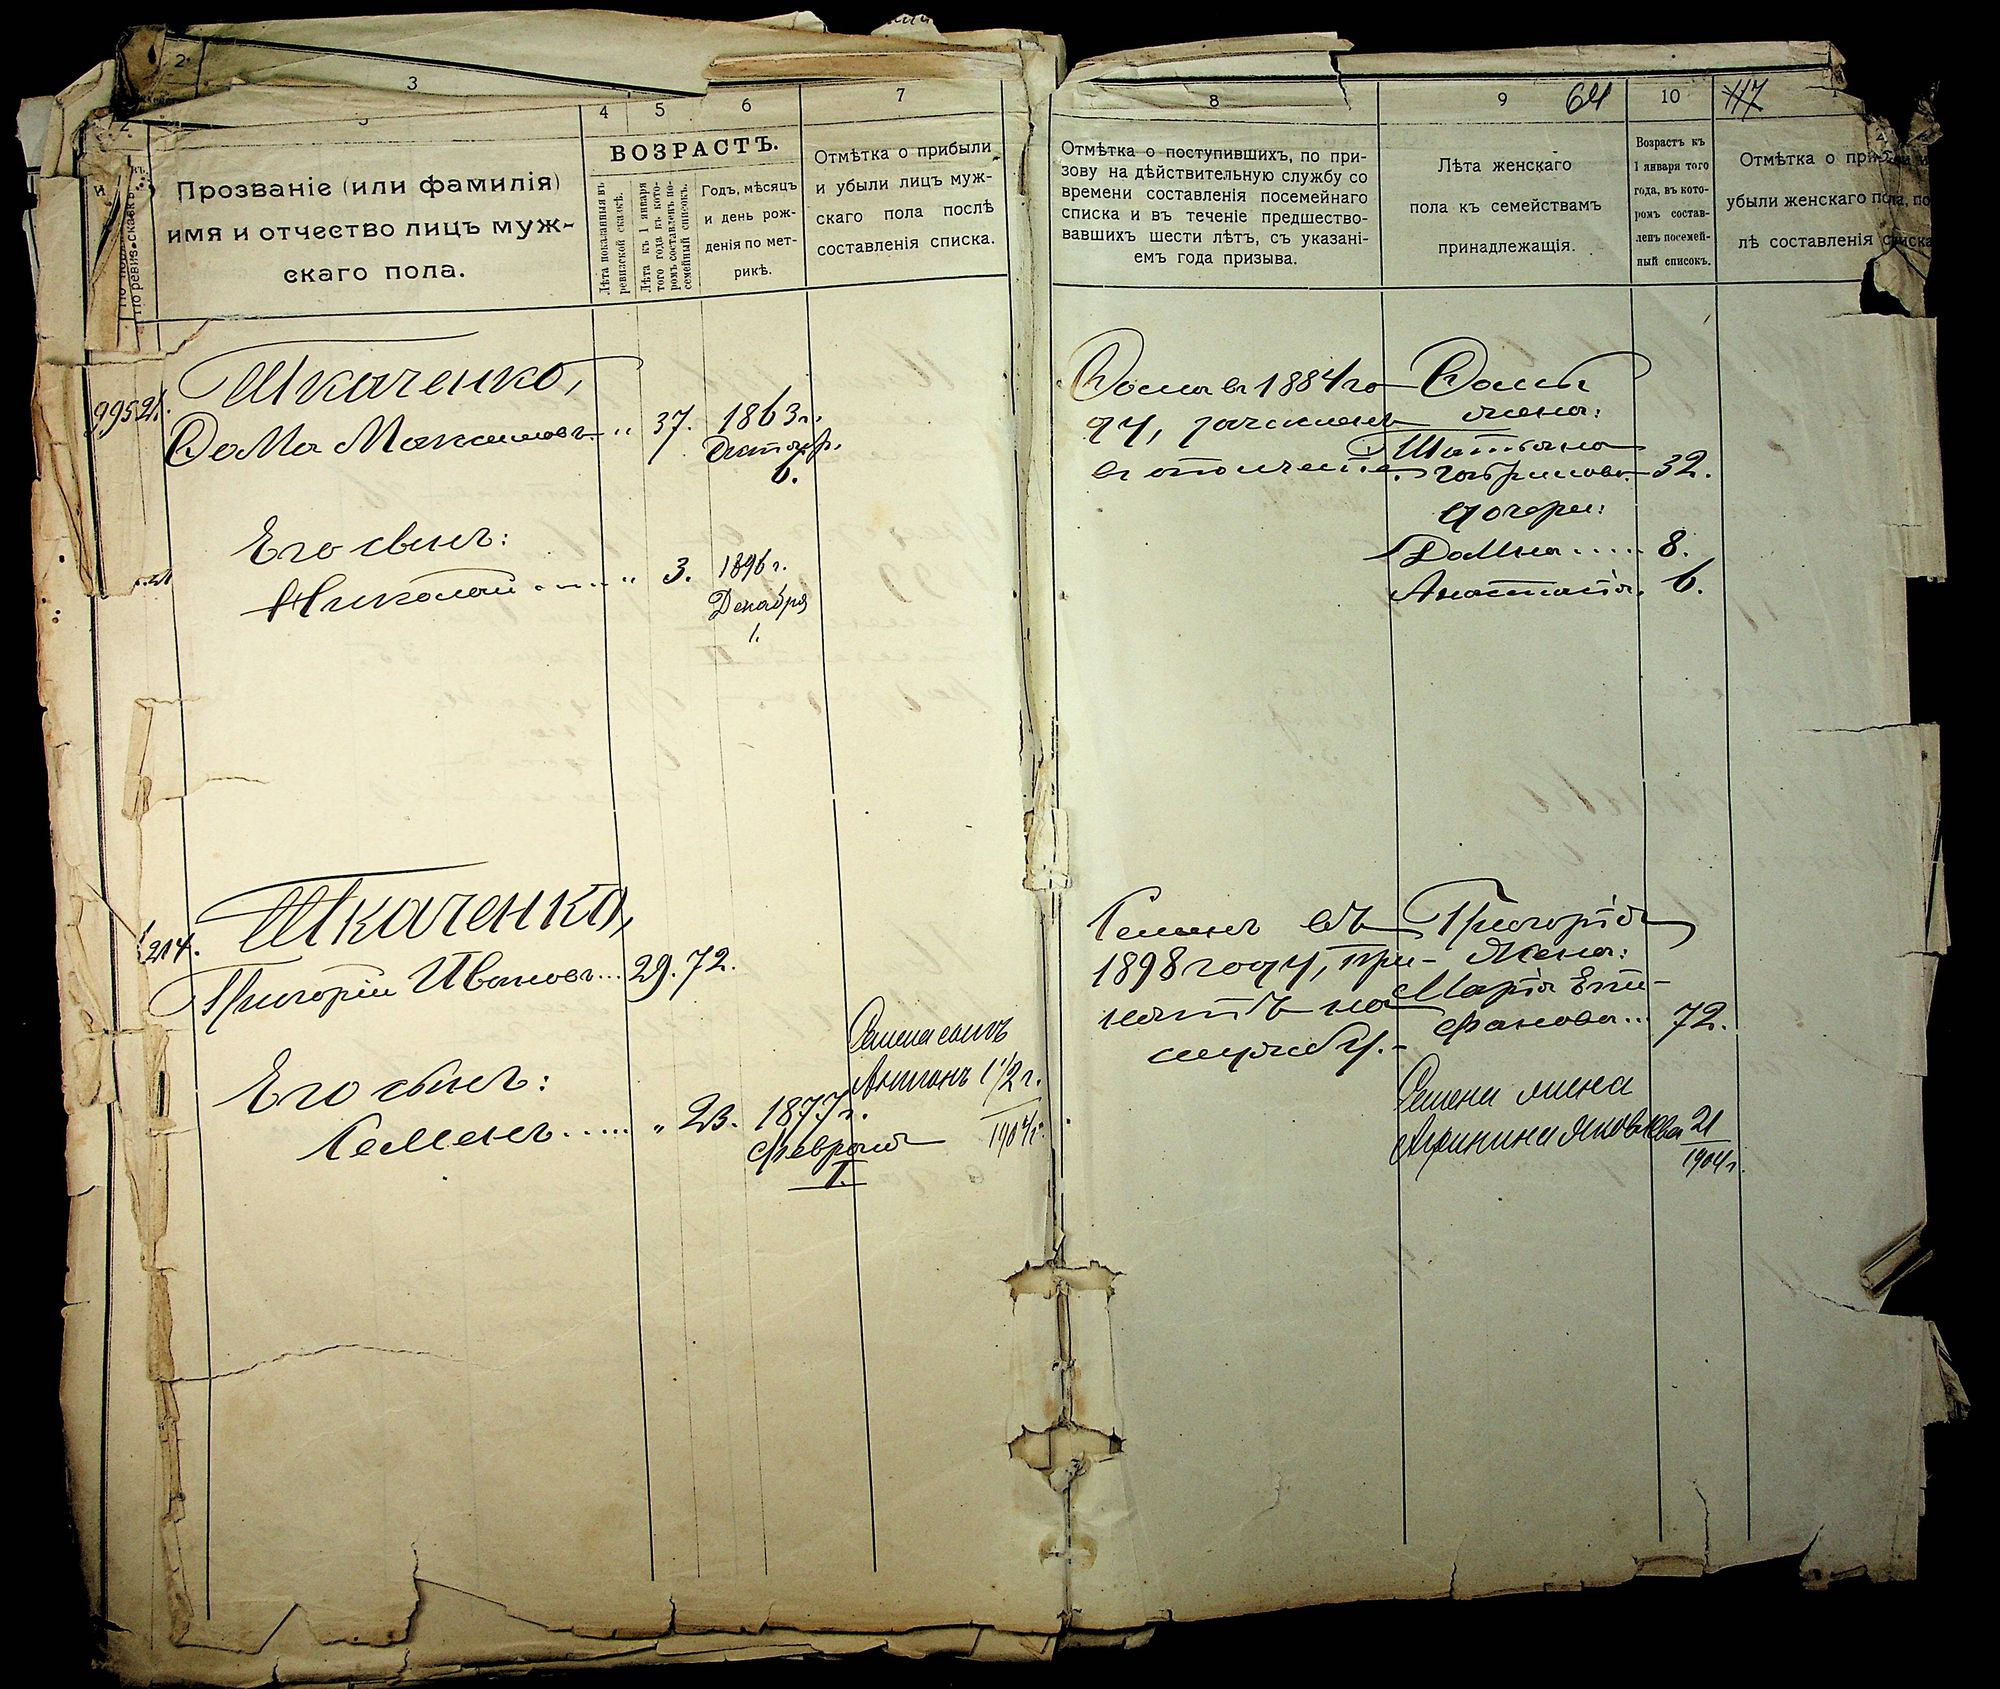 3
4
5
6
7
Прозваніе (или фамилія)
имя и отчество лицъ муж-
скаго пола.
ВОЗРАСТЪ.
Лѣта показанныя въ
ревизской сказкѣ.
Лѣта къ 1 января
того года въ кото-
ромъ составленъ по-
семейный списокъ.
Годъ, мѣсяцъ
и день рож-
денія по мет-
рикѣ.
Отмѣтка о прибыли
и убыли лицъ муж-
скаго пола послѣ
составленія списка.
Ткаченко,
Ѳома Максимовъ " 37. 1863 г.
Октября.
6.
Его сынъ:
Николай " 3. 1896 г.
Декабря
1.
Ткаченко,
214.
Григорій Ивановъ... 29. 72.
Семена сынъ
Антонъ 1 1/2 г.
1904 г.
Его сынъ:
Семенъ..... " 23. 1877 г.
Февраля
1.
8
9 64
10
117
Отмѣтка о поступившихъ, по при-
зову на дѣйствительную службу со
времени составленія посемейнаго
списка и въ теченіе предшество-
вавшихъ шести лѣтъ, съ указані-
емъ года призыва.
Лѣта женскаго
пола къ семействамъ
принадлежащія.
Возрастъ къ
1 января того
года, въ кото-
ромъ состав-
ленъ посемей-
ный списокъ.
Отмѣтка о при
убыли женскаго пола, по
лѣ составленія списка
Ѳома въ 1884 го-
ду, зачисленъ
въ ополченіе.
Ѳомы
жена:
Татьяна
Гавриилова 32.
дочери:
Домна..... 8.
Анастасія. 6.
Семенъ въ
1898 году, при-
нятъ на
службу.-
Григорія
жена:
Марія Епи-
фанова... 72.
Семена жена
Яковлева 21
1904 г.